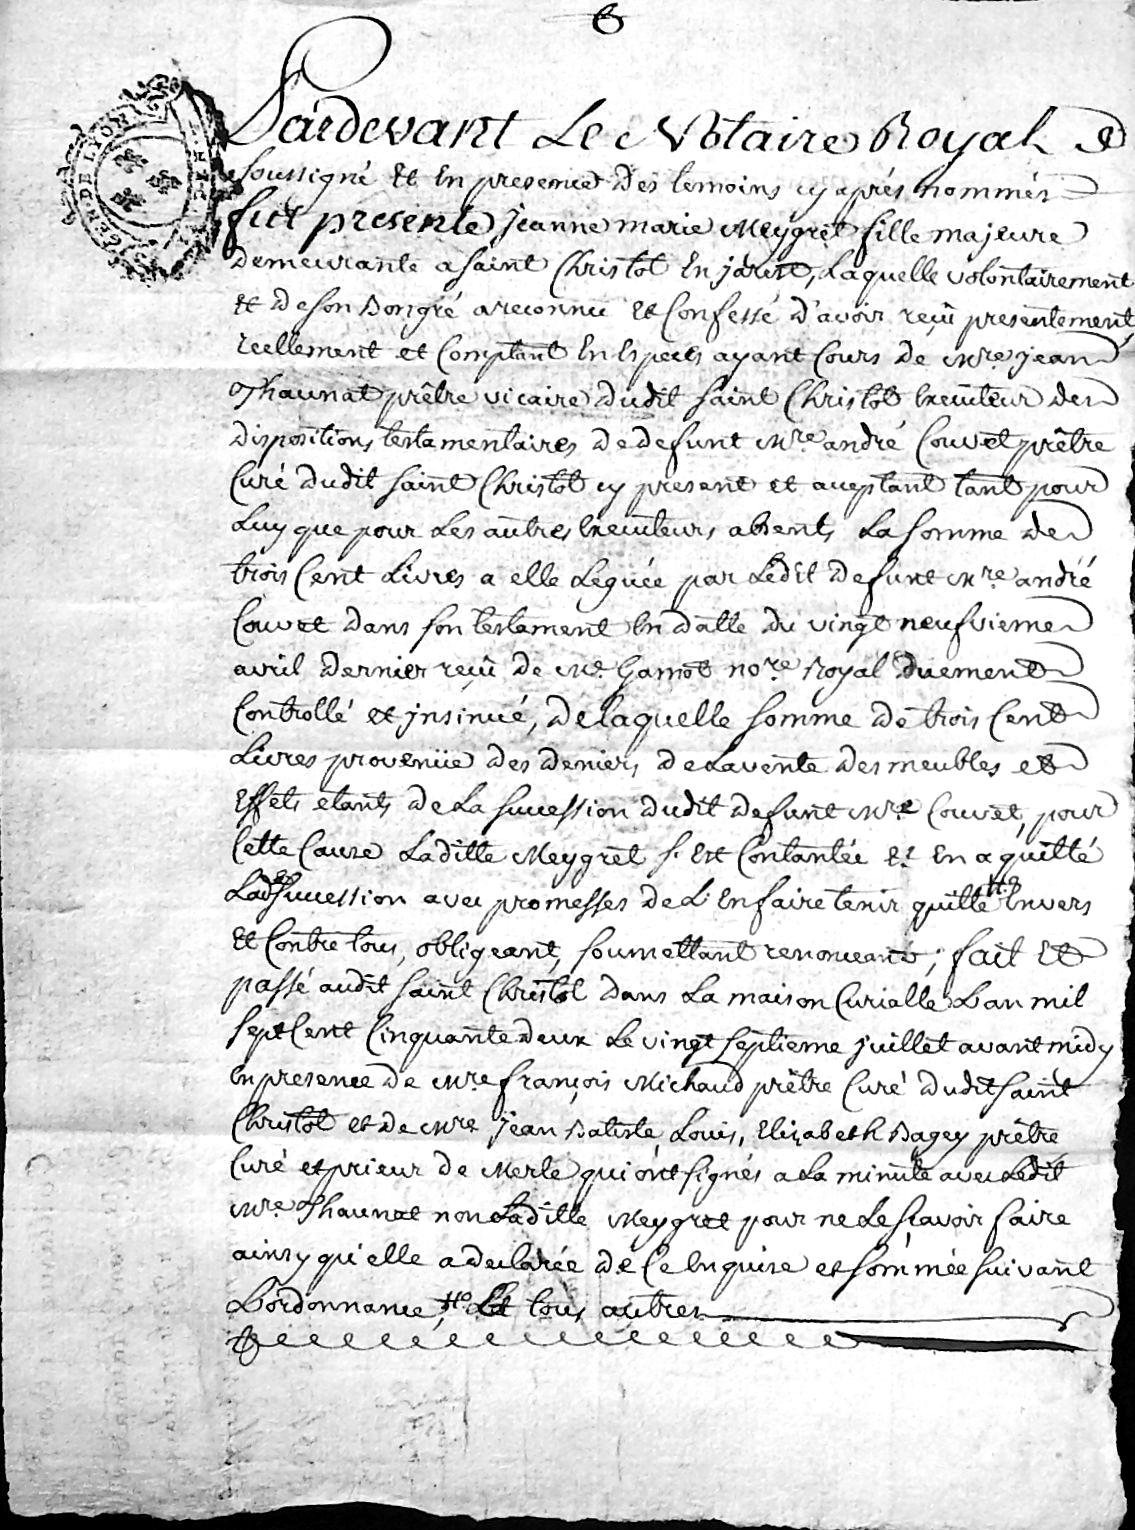 6
GEN DE LYON
Pardevant Le Notaire Royal
soussigné Et En presence des temoins cy aprés nommés
fut presente jeanne marie Meygret fille majeure
demeurante a saint Christot En jarest, Laquelle volontairement
et de son bon gré a reconnu et Confessé d'avoir reçû presentement
reellement et Comptant En Especes ayant Cours de Mre. jean
Thaunat prêtre vicaire dudit saint Christot Executeur des
dispositions testamentaires de defunt Mre andré Couvet prêtre
Curé dudit saint Christot cy present et aceptant tant pour
Luy que pour Les autres Executeurs absents La somme de
trois Cent Livres a elle Leguée par Ledit defunt Mre. andré
Couvet dans son testament En datte du vingt neufvieme
avril dernier reçû de Me. Gamot nore. Royal duement
Controllé et jnsinué, de laquelle somme de trois Cent
Livres provenüe des deniers de La vente des meubles et
Effets etants de La succession dudit defunt Mre Couvet, pour
Cette Cause Laditte Meygret s'est Contantée et En a quitté
Lad succession avec promesses de L'En faire tenir quitte Envers
Et Contre tous, obligeant, soumettant renonceant; fait Et
passé audit saint Christot dans La maison Curialle L'an mil
sept Cent Cinquante deux Le vingt septieme juillet avant midy
En presence de Mre françois Michaud prêtre Curé dudit saint
Christot et de Mre jean Batiste Louis, Elizabeth Bagey prêtre
Curé et prieur de Merle qui ont signés a La minute avec Ledit
Mre. Thaunat non Laditte Meygret pour ne Le sçavoir faire
ainsy qu'elle a declarée de Ce Enquise et sommée suivant
L'ordonnance, tous autres